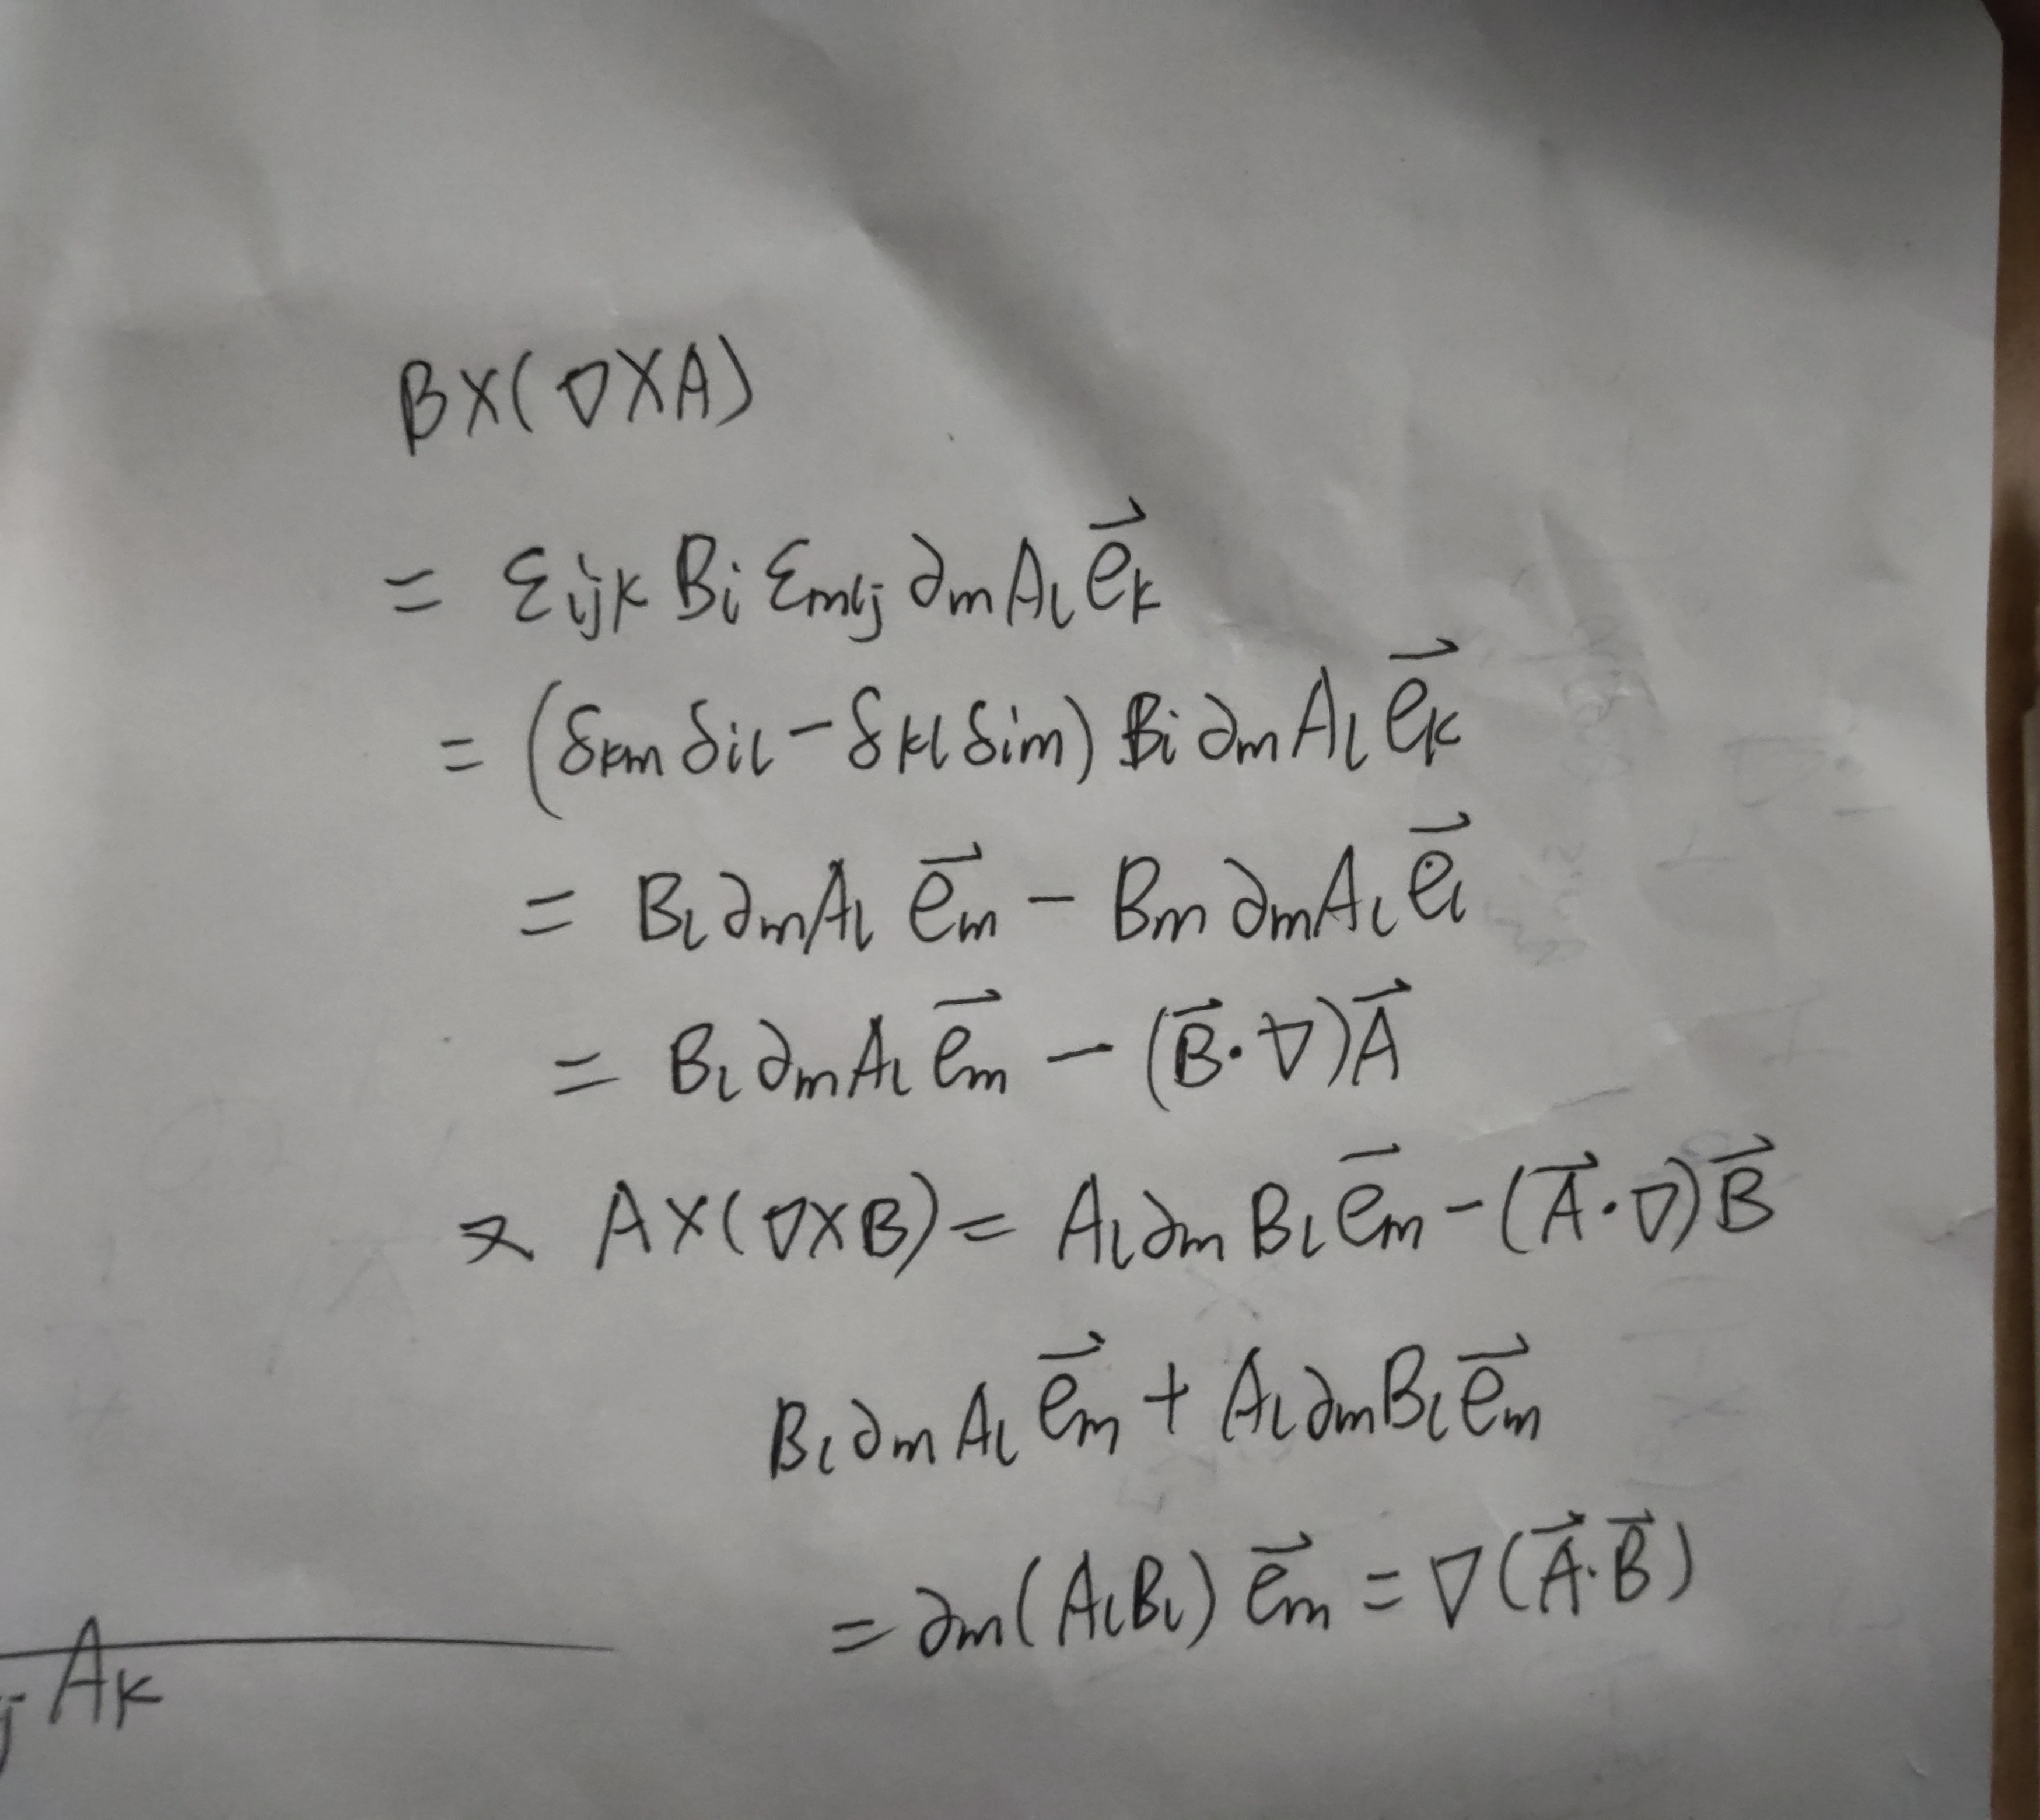 B×(∇×A)
= ε_{ijk} B_i ε_{mlj} ∂_m A_l \vec{e}_k
= (δ_{km} δ_{il} − δ_{kl} δ_{im}) B_i ∂_m A_l \vec{e}_k
= B_l ∂_m A_l \vec{e}_m − B_m ∂_m A_l \vec{e}_l
= B_l ∂_m A_l \vec{e}_m − (\vec{B}·∇)\vec{A}
又 A×(∇×B) = A_l ∂_m B_l \vec{e}_m − (\vec{A}·∇)\vec{B}
B_l ∂_m A_l \vec{e}_m + A_l ∂_m B_l \vec{e}_m
= ∂_m (A_l B_l) \vec{e}_m = ∇(\vec{A}·\vec{B})
j A_k